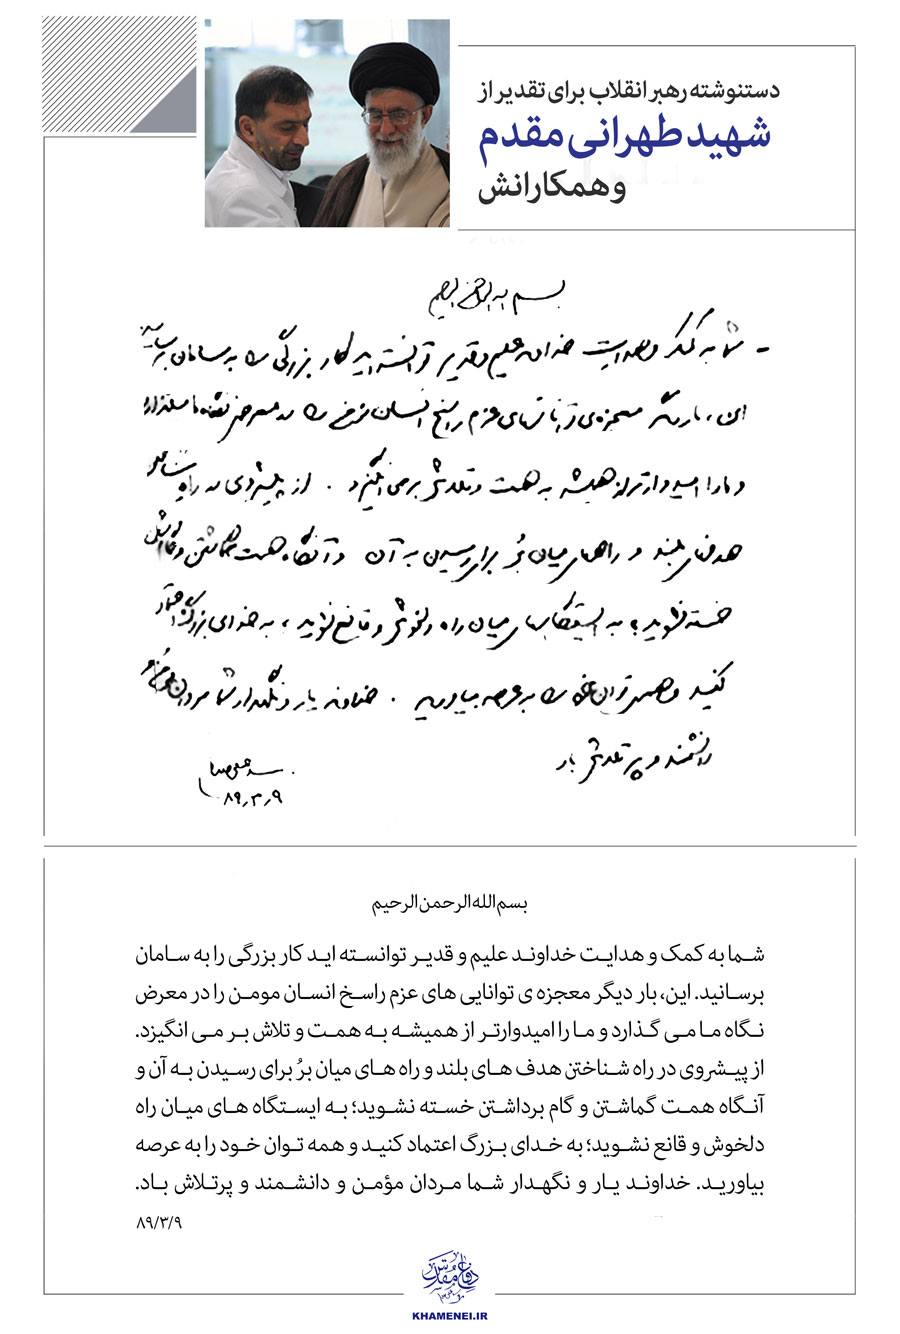 دستنوشته رهبر انقلاب برای تقدیر از
شهید طهرانی مقدم
و همکارانش
بسم الله الرحمن الرحیم
- شما به کمک و هدایت خداوند علیم و قدیر توانسته اید کار بزرگی را به سامان برسانید
این، بار دیگر معجزه‌ی توانائیهای عزم راسخ انسان مؤمن را در معرض نگاه ما میگذارد
و ما را امیدوارتر از همیشه به همت و تلاش برمی‌انگیزد. از پیشروی در راه شناختن
هدفهای بلند و راههای میان بُر برای رسیدن به آن و آنگاه همت گماشتن و گام برداشتن
خسته نشوید؛ به ایستگاههای میان راه دلخوش و قانع نشوید، به خدای بزرگ اعتماد
کنید و همه‌ی توان خود را به عرصه بیاورید. خداوند یار و نگهدار شما مردان مؤمن و
دانشمند و پر تلاش باد
سید علی خامنه‌ای
۸۹٫۳٫۹
بسم الله الرحمن الرحیم
شما به کمک و هدایت خداوند علیم و قدیر توانسته اید کار بزرگی را به سامان
برسانید. این، بار دیگر معجزه ی توانایی های عزم راسخ انسان مومن را در معرض
نگاه ما می گذارد و ما را امیدوارتر از همیشه به همت و تلاش بر می انگیزد.
از پیشروی در راه شناختن هدف های بلند و راه های میان برُ برای رسیدن به آن و
آنگاه همت گماشتن و گام برداشتن خسته نشوید؛ به ایستگاه های میان راه
دلخوش و قانع نشوید؛ به خدای بزرگ اعتماد کنید و همه توان خود را به عرصه
بیاورید. خداوند یار و نگهدار شما مردان مؤمن و دانشمند و پرتلاش باد.
۸۹/۳/۹
دفاع مقدس
KHAMENEI.IR